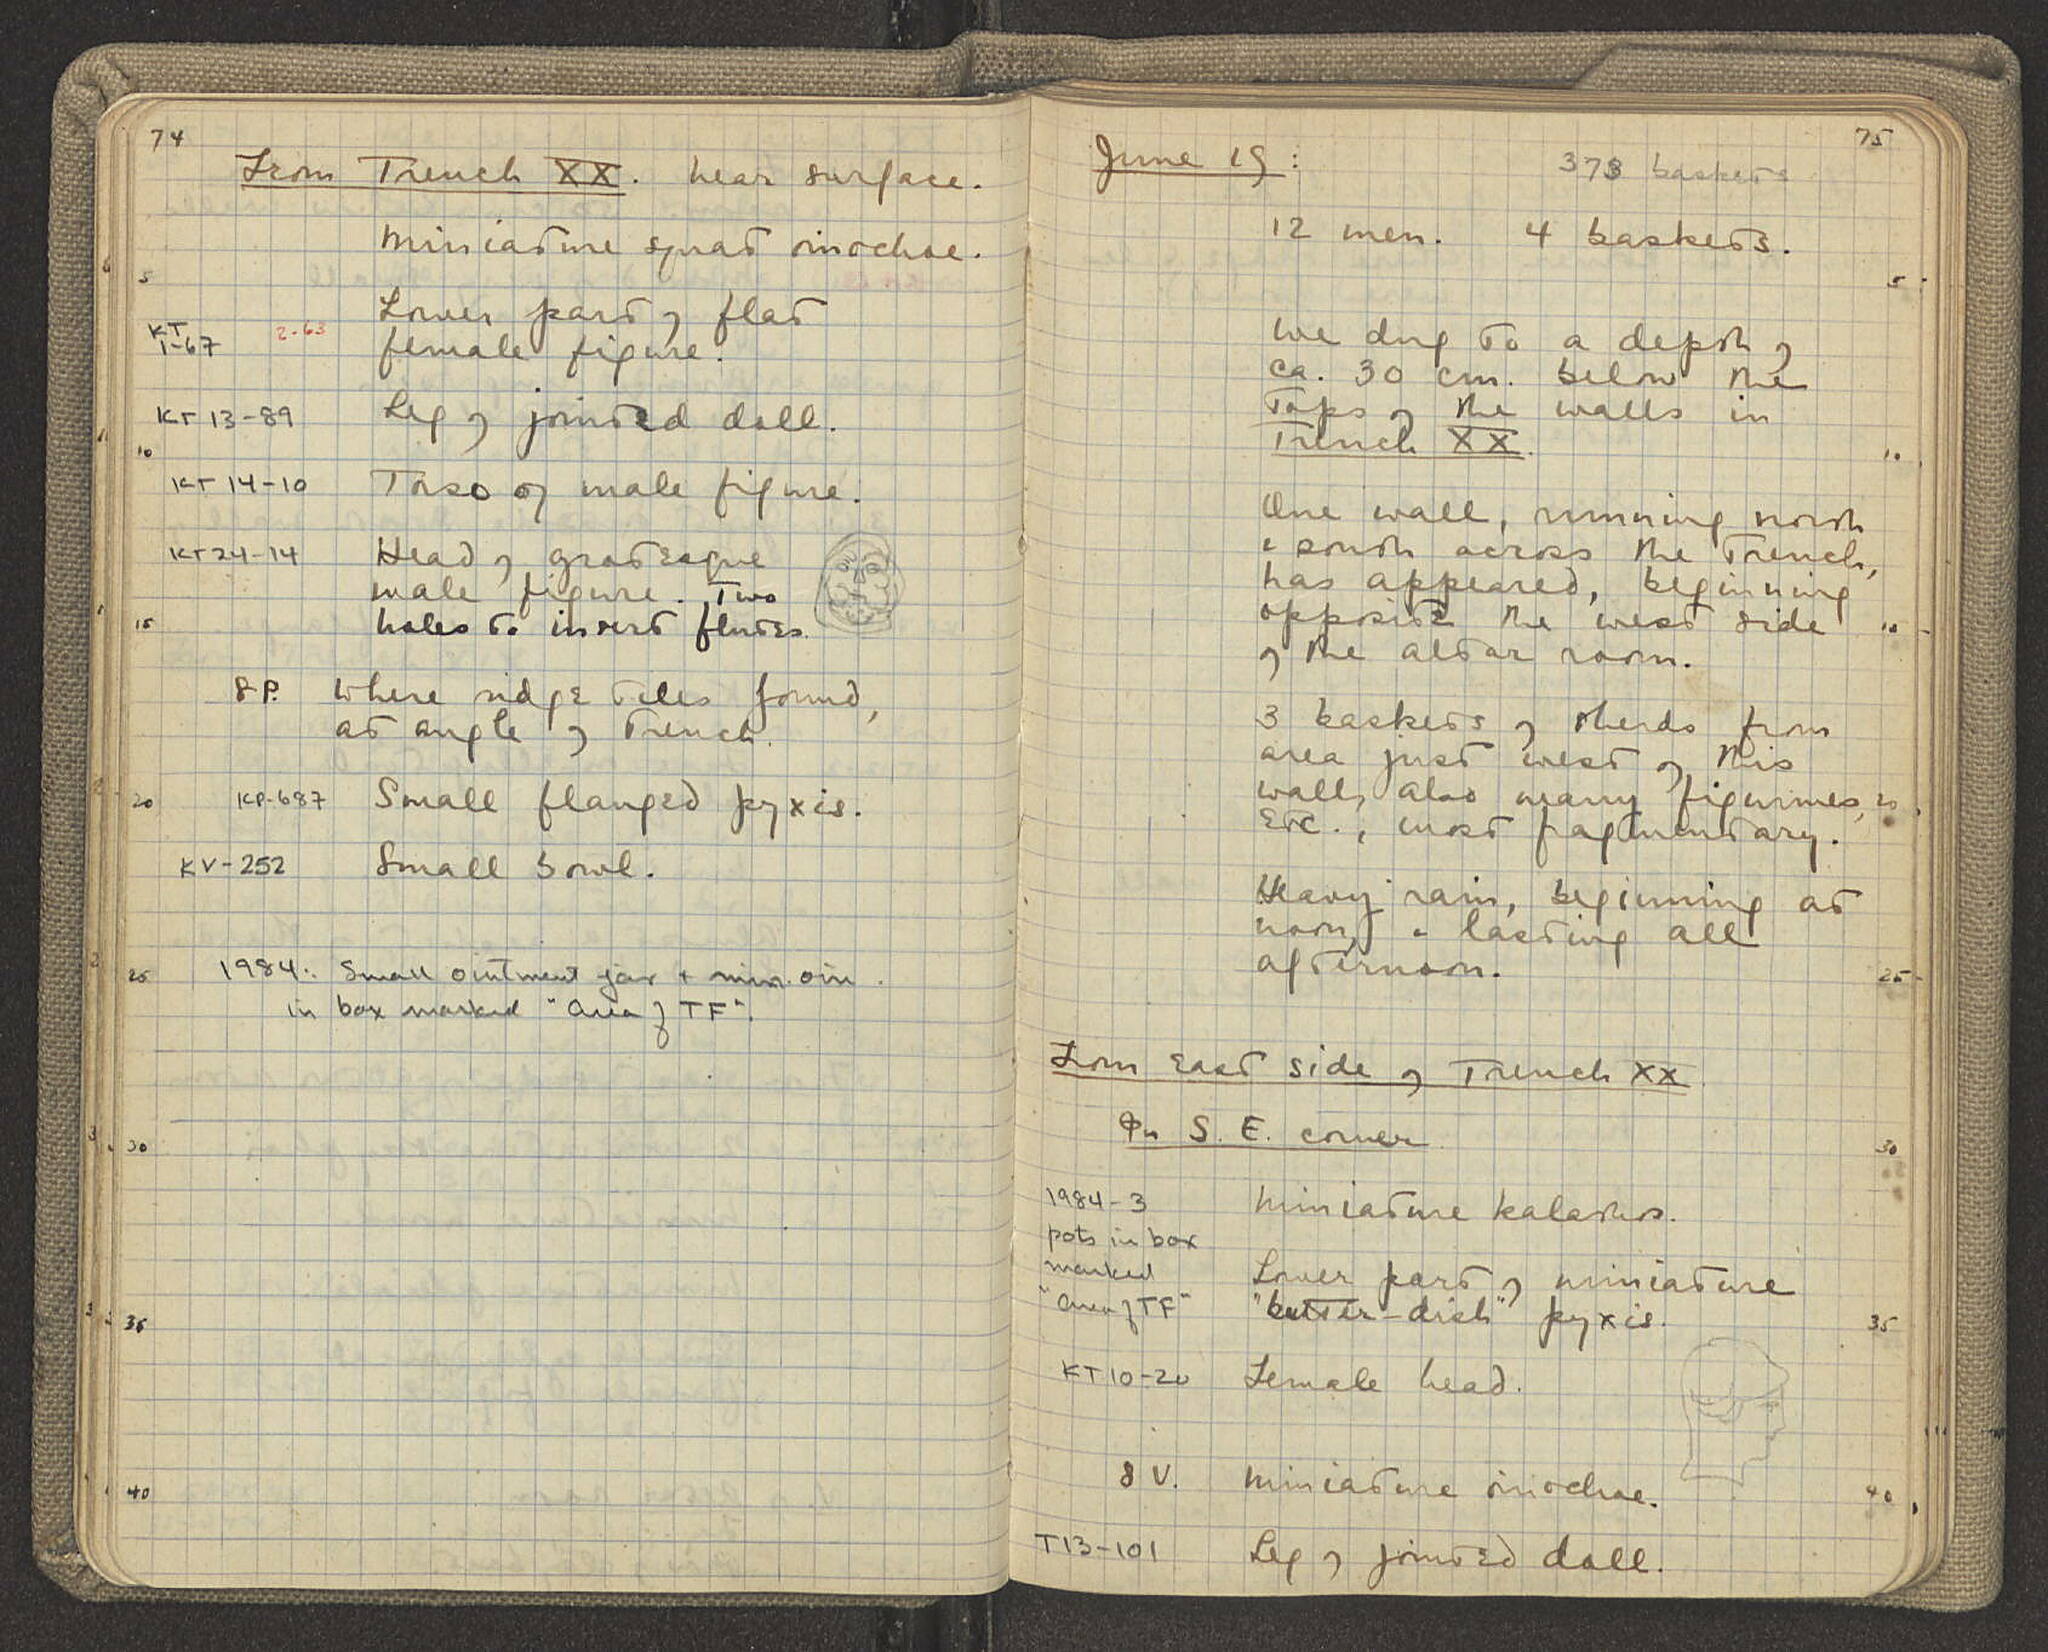 74
From Trench XX. near surface.
Miniature squat oinochoe.
5
Lower part of flat
KT 1-67 2-63 female figure.
KT 13-89 Leg of jointed doll.
10
KT 14-10 Torso of male figure.
KT 24-14 Head of grotesque
male figure. Two
15 holes to insert flutes.
8 P. Where ridge tiles found,
at angle of Trench.
20 KP-687 Small flanged pyxis.
KV-252 Small bowl.
25 1984: Small ointment jar + min. oin.
in box marked "Area of TF".
30
35
40
75
June 19: 373 baskets
12 men. 4 baskets.
5
We dug to a depth of
ca. 30 cm. below the
tops of the walls in
Trench XX.
10
One wall, running north
& south across the Trench,
has appeared, beginning
opposite the west side
of the altar room.
3 baskets of sherds from
area just west of this
wall, also many figurines, 20
etc., most fragmentary.
Heavy rain, beginning at
noon, & lasting all
afternoon. 25
From East side of Trench XX
In S. E. corner
30
1984-3 Miniature kalathos.
pots in box
marked Lower part of miniature
"Area of TF" "butter-dish" pyxis.
35
KT 10-20 Female head.
8 V. Miniature oinochoe.
40
T13-101 Leg of jointed doll.